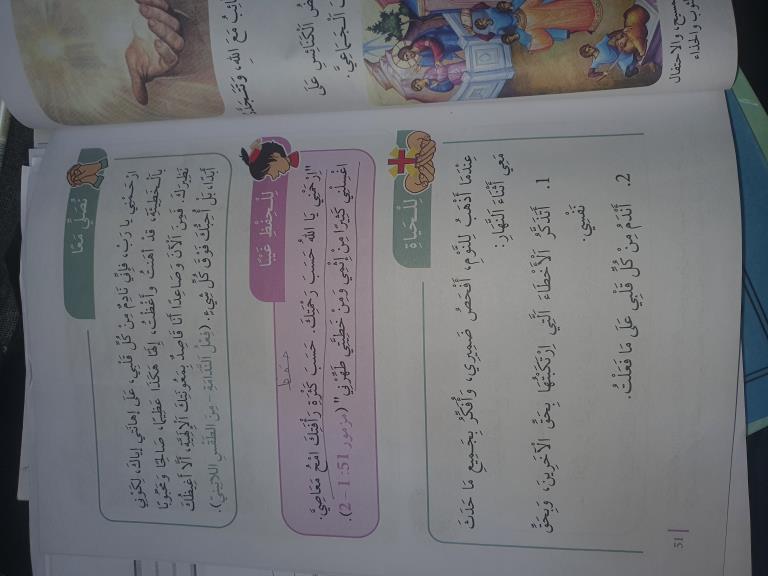 نُصَلِّي مَعًا
اِرْحَمْنِي يَا رَبّ، فَإِنِّي نَادِمٌ مِنْ كُلِّ قَلْبِي، عَلَى إِهَانَتِي إِيَّاكَ، لِكَوْنِي
بِالْخَطِيئَةِ، قَدْ أَهَنْتُ وَأَغَظْتُ، إِلَهًا هَكَذَا عَظِيمًا، صَالِحًا وَمَحْبُوبًا
نَظِيرَكَ. فَمِنَ الْآنَ وَصَاعِدًا أَنَا قَاصِدٌ بِمَعُونَتِكَ الْإِلَهِيَّةِ، أَلَّا أُغِيظَكَ
أَبَدًا، بَلْ أُحِبُّكَ فَوْقَ كُلِّ شَيْءٍ (فِعْلُ النَّدَامَةِ - مِنَ الطَّقْسِ اللَّاتِينِيِّ).
لِلْحِفْظِ غَيْبًا
حفظ
"اِرْحَمْنِي يَا اللهُ حَسَبَ رَحْمَتِكَ. حَسَبَ كَثْرَةِ رَأْفَتِكَ امْحُ مَعَاصِيَّ.
اغْسِلْنِي كَثِيرًا مِنْ إِثْمِي وَمِنْ خَطِيَّتِي طَهِّرْنِي" (مزمور 51: 1-2).
لِلْحَيَاةِ
عِنْدَمَا أَذْهَبُ لِلنَّوْمِ، أَفْحَصُ ضَمِيرِي، وَأُفَكِّرُ بِجَمِيعِ مَا حَدَثَ
مَعِي أَثْنَاءَ النَّهَارِ:
1. أَتَذَكَّرُ الْأَخْطَاءَ الَّتِي اِرْتَكَبْتُهَا بِحَقِّ الْآخَرِينَ، وَبِحَقِّ
نَفْسِي.
2. أَنْدَمُ مِنْ كُلِّ قَلْبِي عَلَى مَا فَعَلْتُ.
51
مَعَ اللهِ، وَنَسْجُدُ
الْكَنَائِسِ عَلَى
الْجَمَاعِيِّ.
والاحتفال
والحذاء